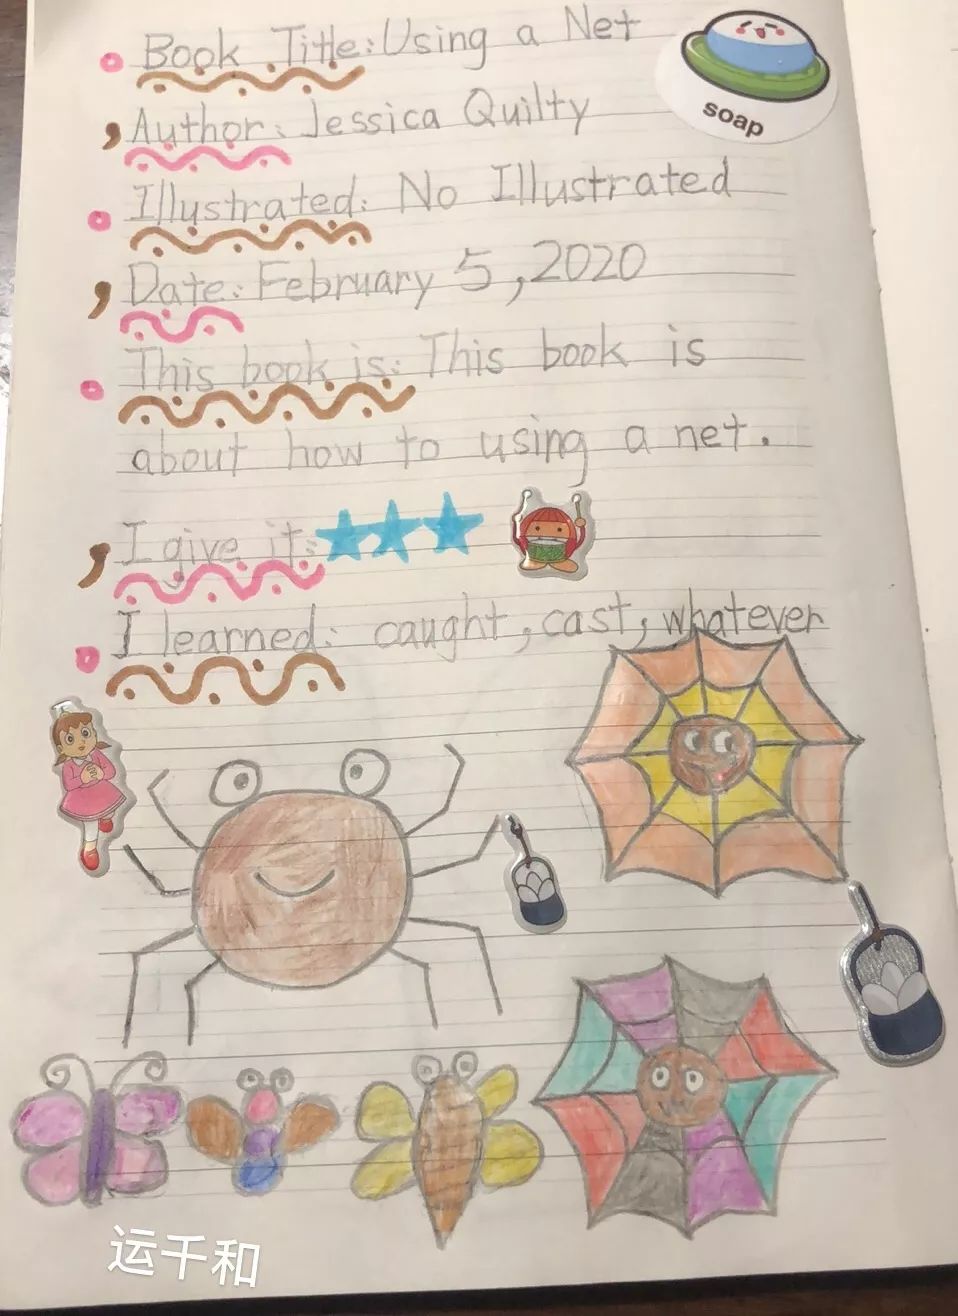 Book Title: Using a Net
soap
Author: Jessica Quilty
Illustrated: No Illustrated
Date: February 5, 2020
This book is: This book is
about how to using a net.
I give it:
I learned: caught, cast, whatever
运千和